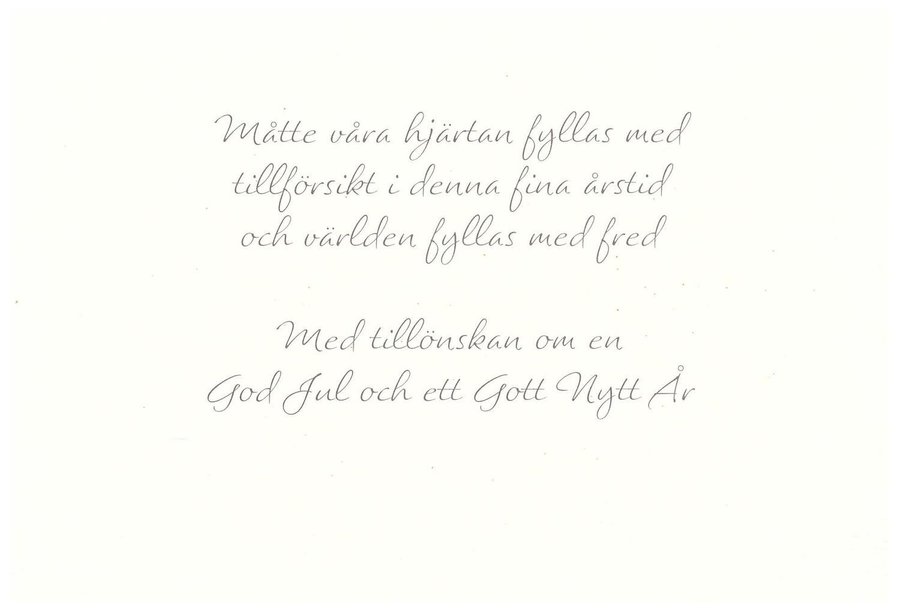 Måtte våra hjärtan fyllas med
tillförsikt i denna fina årstid
och världen fyllas med fred
Med tillönskan om en
God Jul och ett Gott Nytt År